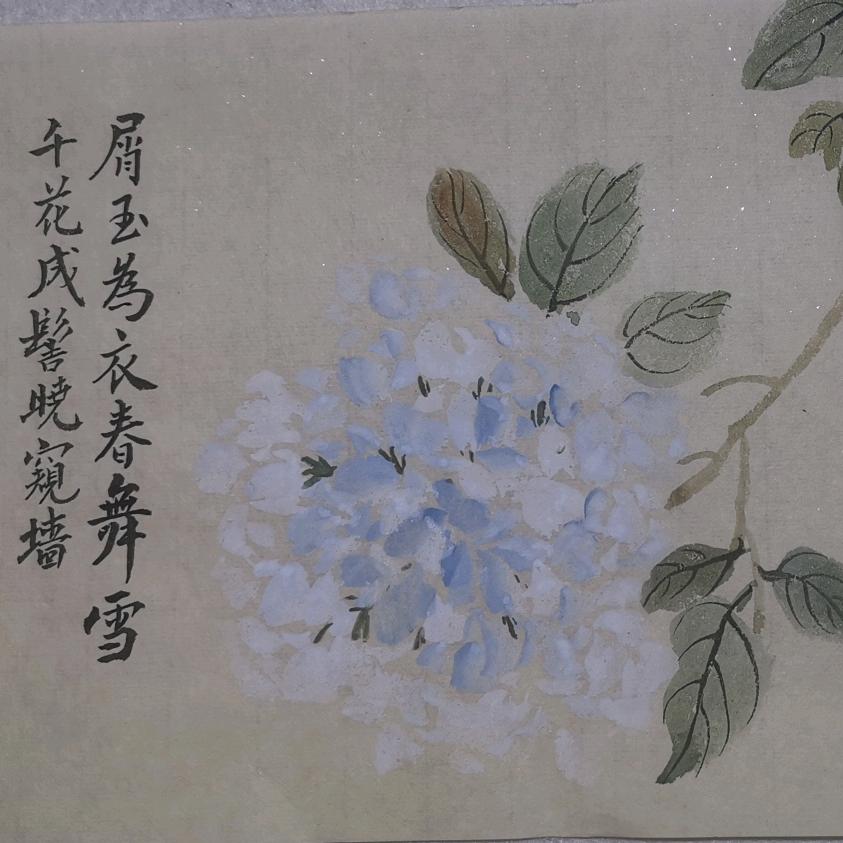 屑玉為衣春舞雪
千花成髻曉窺墻